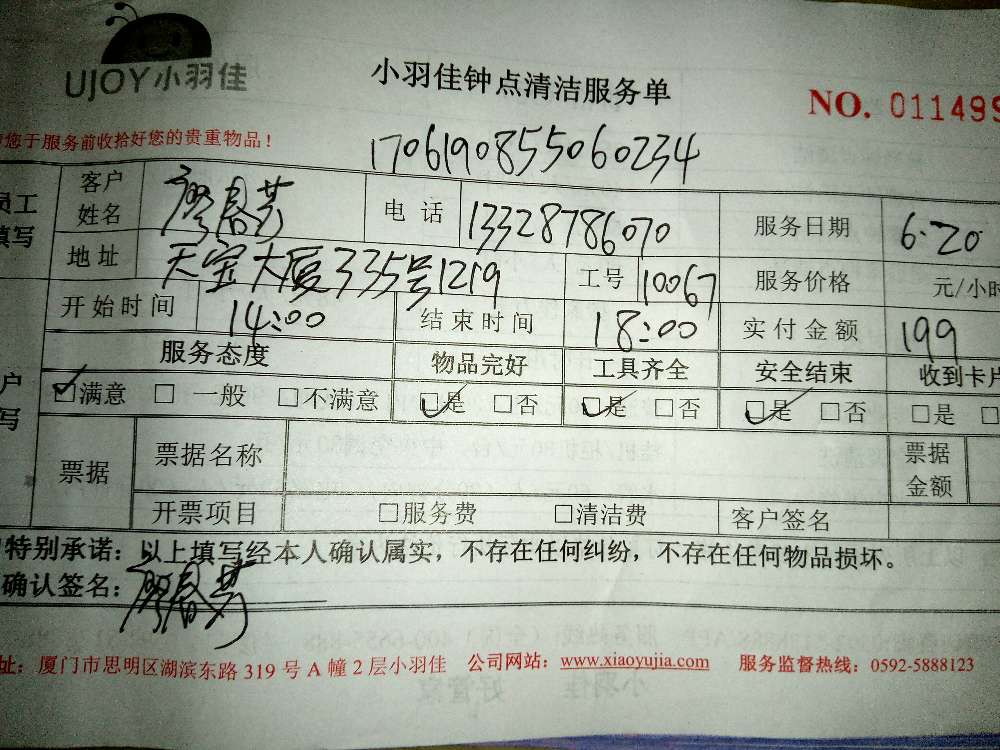 UJOY小羽佳
小羽佳钟点清洁服务单
NO. 011499
您于服务前收拾好您的贵重物品！
170619085506​0234
员工填写 客户姓名 廖春芳 电话 13328786070 服务日期 6.20
地址 天宝大厦335号1219 工号 10067 服务价格 元/小时
开始时间 14:00 结束时间 18:00 实付金额 199
服务态度 物品完好 工具齐全 安全结束 收到卡片
☑满意 □ 一般 □不满意 ☑是 □否 ☑是 □否 ☑是 □否 □是 □
票据 票据名称 票据金额
开票项目 □服务费 □清洁费 客户签名
特别承诺：以上填写经本人确认属实，不存在任何纠纷，不存在任何物品损坏。
确认签名：廖春芳
址：厦门市思明区湖滨东路 319 号 A 幢 2 层小羽佳 公司网站：www.xiaoyujia.com 服务监督热线：0592-5888123